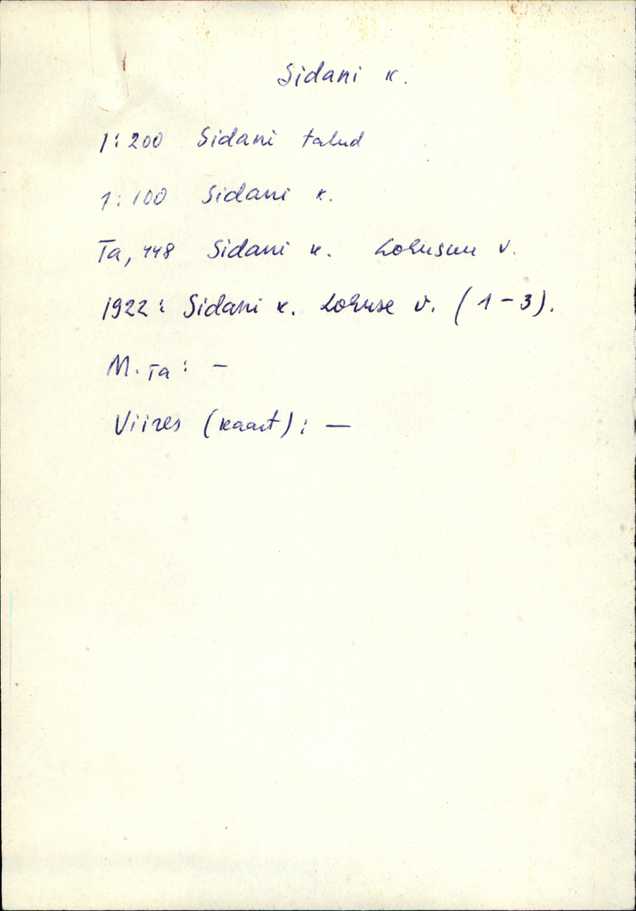 Sidani k.
1:200 Sidani talud
1:100 Sidani k.
Ta, 448 Sidani k. Lohusuu v.
1922: Sidani k. Lohuse v. (1-3).
M. Ta: -
Viires (kaart): —